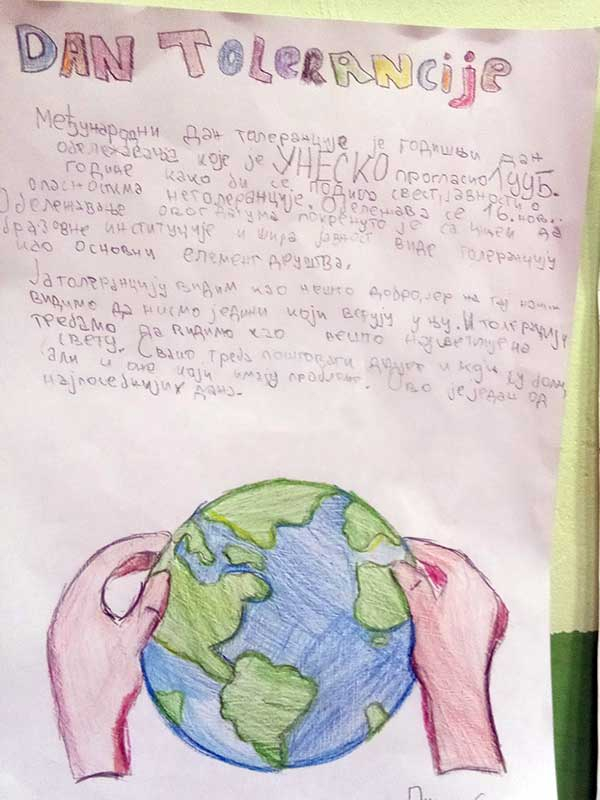 DAN TOLERANCIJE
Међународни дан толеранције је годишњи дан
обележавања које је УНЕСКО прогласио 1995.
године како би се подигла свест јавности о
опасностима нетолеранције. Обележава се 16. нов.
Обележавање овог датума покренуто је са циљем да
образовне институције и шира јавност виде толеранцију
као основни елемент друштва.
Ја толеранцију видим као нешто добро, јер на тај начин
видимо да нисмо једини који верују у њу. И толеранцију
требамо да видимо као нешто најсветије на
свету. Свако треба поштовати друге и који су боли,
али и оне који имају проблеме. Ово је један од
најпосебнијих дана.